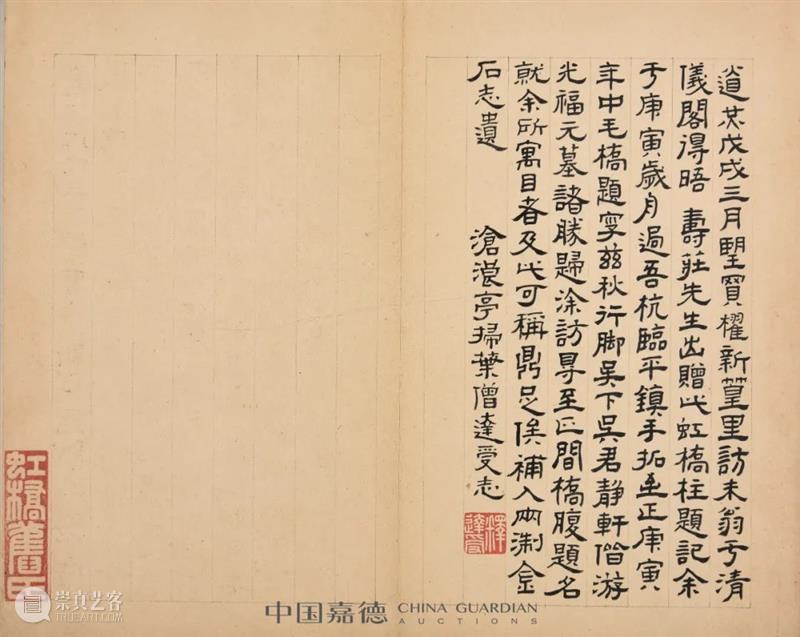 道光戊戌三月望買櫂新篁里訪未翁于清
儀閣得晤 壽莊先生出贈此虹橋柱題記余
于庚寅歲身過吾杭臨平鎮手拓至正庚寅
年中毛橋題字茲秋行腳吳下吳君靜軒偕游
光福元墓諸勝歸涂訪尋至正間橋腹題名
就余所寓目者及此可稱鼎足俟補入兩浙金
石志遺
滄浪亭掃葉僧達受志
釋達受
虹橋舊
崇真艺客
中国嘉德 CHINA GUARDIAN
AUCTIONS